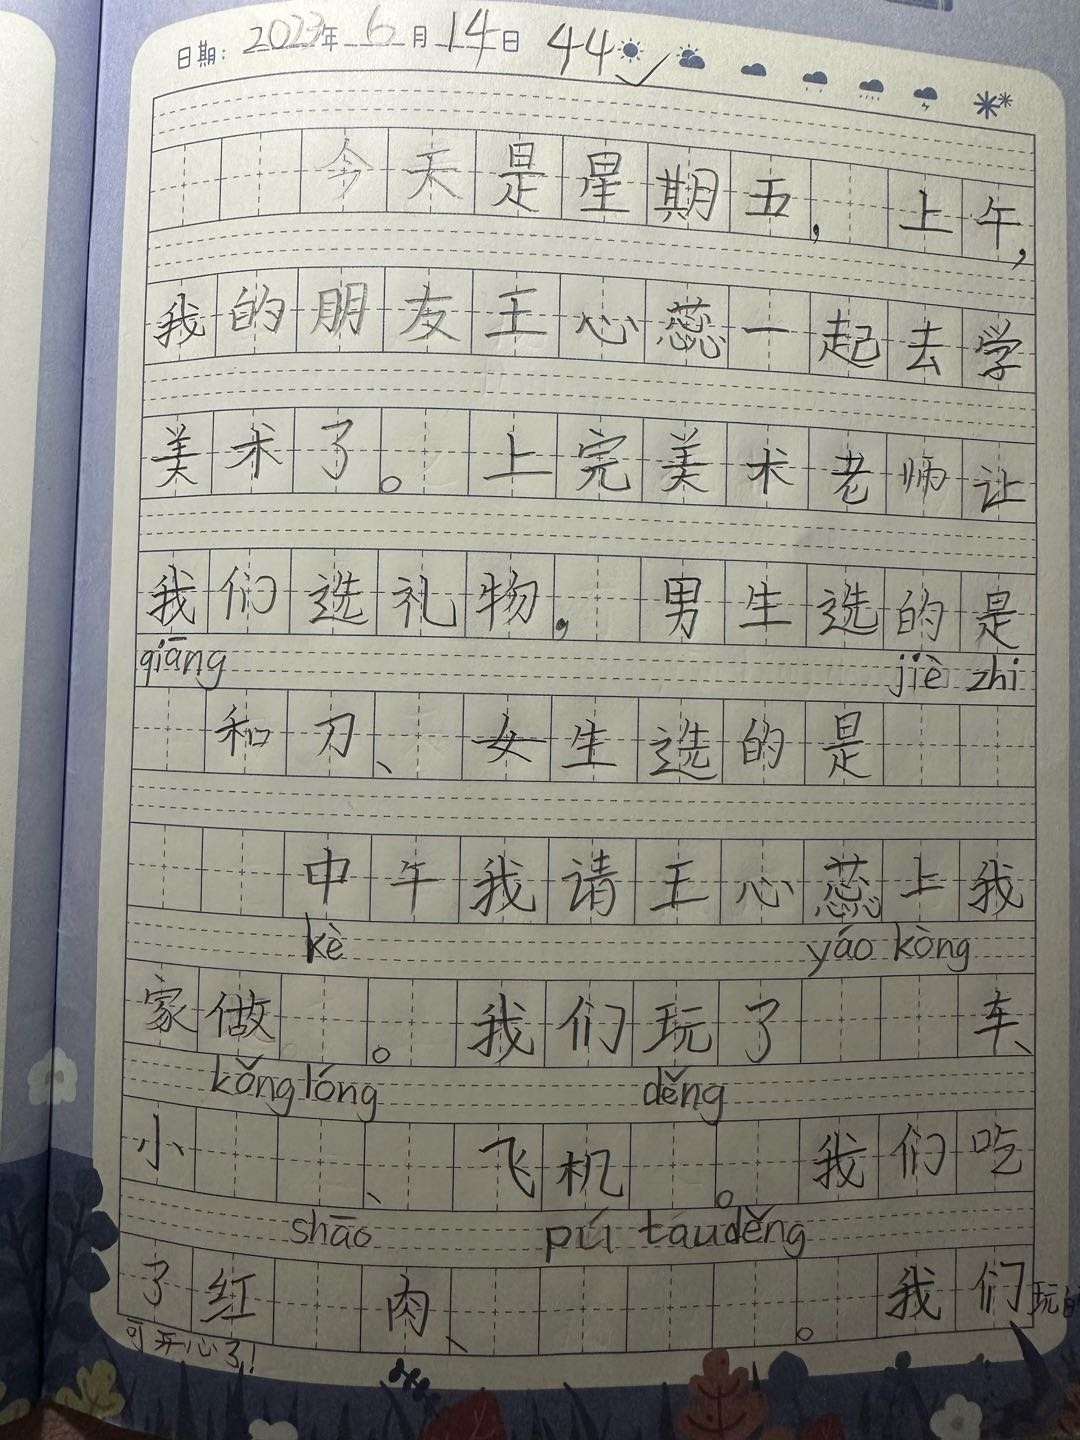 日期: 2023年 6 月 14 日 44
今天是星期五, 上午,
我的朋友王心蕊一起去学
美术了。上完美术老师让
我们选礼物, 男生选的是
qiāng jiè zhi
和刀、女生选的是
中午我请王心蕊上我
kè yáo kòng
家做 。我们玩了 车、
kǒng lóng děng
小 、飞机 。我们吃
shāo pí táu děng
了红 肉、 。我们玩的
可开心了!